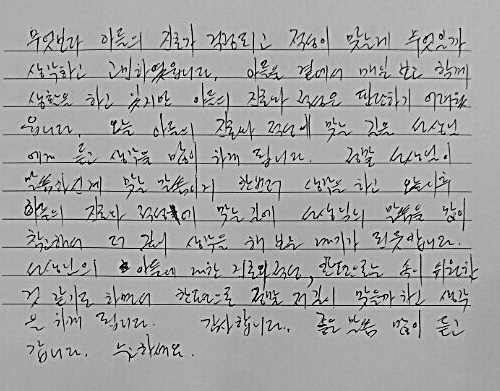 무엇보다 아들의 진로가 걱정되고 적성이 맞는게 무엇일까
생각하고 고민하였습니다. 아들을 곁에서 매일 보고 함께
생활을 하고 있지만 아들의 진로나 적성은 판단하기 어려웠
습니다. 오늘 아들의 진로나 적성에 맞는 길을 선생님
에게 듣고 생각을 많이 하게 됩니다. 정말 선생님이
말씀하신게 맞는 말씀이기 한번더 생각을 하고 오늘이후
아들의 진로나 적성에 맞는 길에 선생님의 말씀을 많이
참고해서 더 깊이 생각을 해 보는 계기가 된듯합니다.
선생님의 아들에 대한 진로와 적성, 한편으로는 속이 쉬원한
것 같기도 하면서 한편으로 정말 저길이 맞을까 하고 생각
을 하게 됩니다. 감사합니다. 좋은 말씀 많이 듣고
갑니다. 수고하세요.